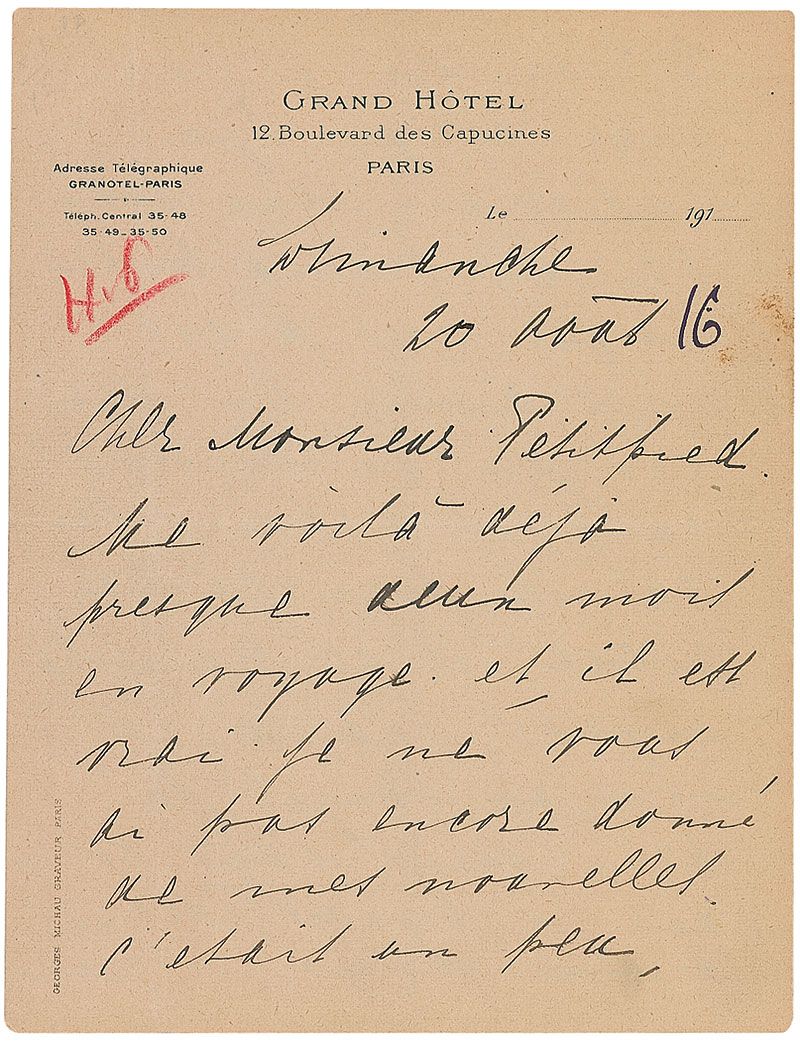 GRAND HÔTEL
12. Boulevard des Capucines
PARIS
Adresse Télégraphique
GRANOTEL-PARIS
Téléph. Central 35-48
35-49_35-50
Le 191
Dimanche
20 Août 16
Cher Monsieur Petitpied.
Me voilà déjà
presque deux mois
en voyage. et, il est
vrai je ne vous
ai pas encore donné
de mes nouvelles.
c'etait un peu,
GEORGES MICHAU GRAVEUR PARIS